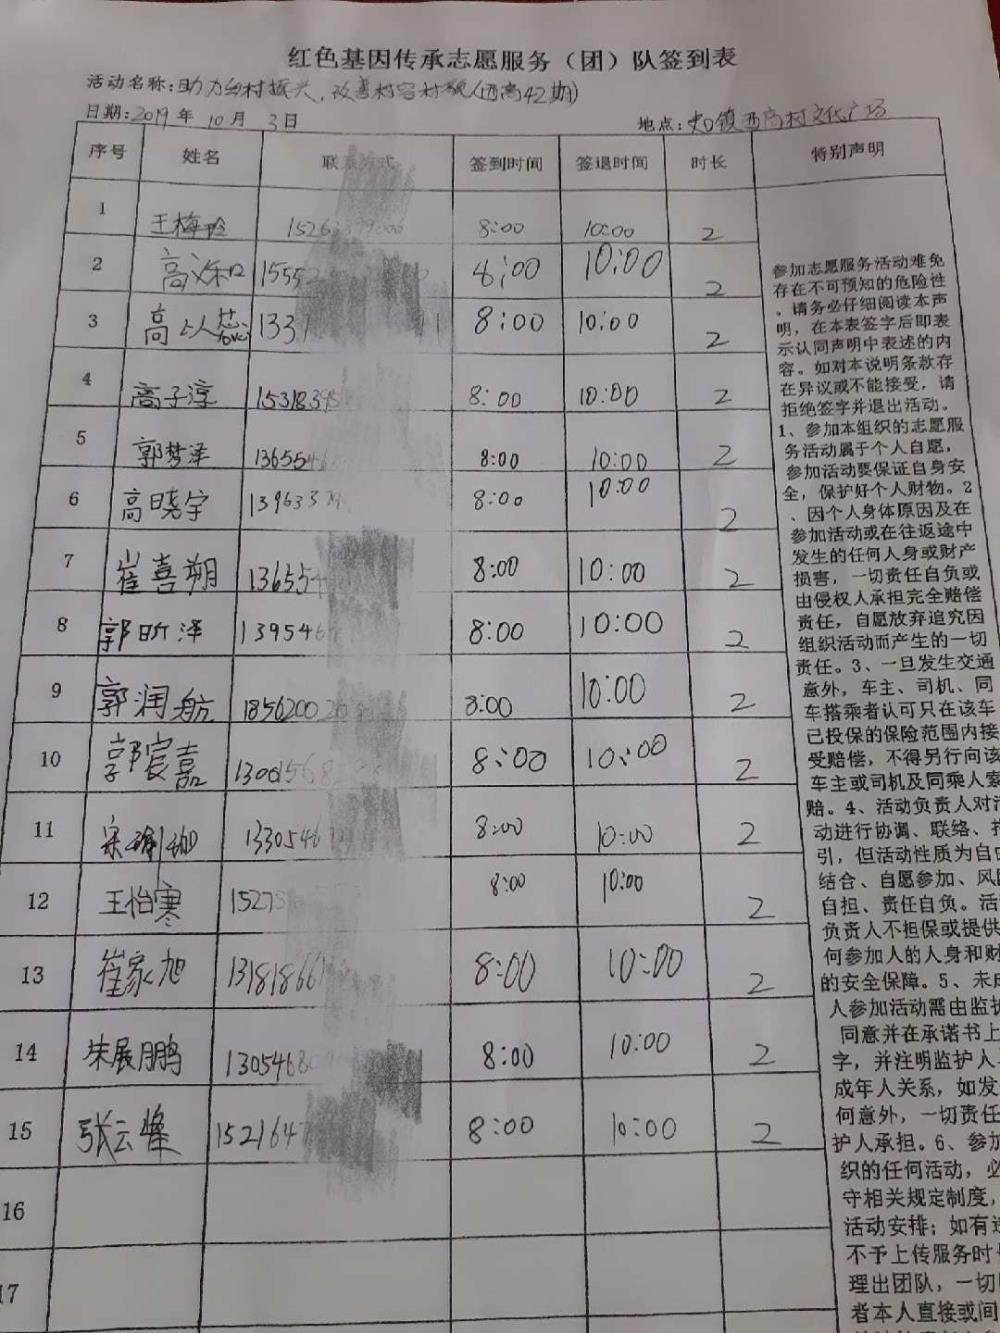 红色基因传承志愿服务（团）队签到表
活动名称:助力乡村振兴,改善村容村貌(西高42期)
日期:2019年10月3日 地点: 镇西高村文化广场
序号 姓名 联系方式 签到时间 签退时间 时长 特别声明
1 王梅玲 15263 8:00 10:00 2
2 高 和 1555 8:00 10:00 2
3 高 133 8:00 10:00 2
4 高子淳 15318395 8:00 10:00 2
5 郭梦泽 1365546 8:00 10:00 2
6 高晓宇 139633 8:00 10:00 2
7 崔喜朔 136554 8:00 10:00 2
8 郭昕泽 139546 8:00 10:00 2
9 郭润航 1856200 8:00 10:00 2
10 郭宸嘉 13001568 8:00 10:00 2
11 宋 1330546 8:00 10:00 2
12 王怡寒 15275 8:00 10:00 2
13 崔家旭 13181866 8:00 10:00 2
14 朱展鹏 1305468 8:00 10:00 2
15 张云峰 152164 8:00 10:00 2
16
17
参加志愿服务活动难免
存在不可预知的危险性
。请务必仔细阅读本声
明，在本表签字后即表
示认同声明中表述的内
容。如对本说明条款存
在异议或不能接受，请
拒绝签字并退出活动。
1、参加本组织的志愿服
务活动属于个人自愿，
参加活动要保证自身安
全，保护好个人财物。2
、因个人身体原因及在
参加活动或在往返途中
发生的任何人身或财产
损害，一切责任自负或
由侵权人承担完全赔偿
责任，自愿放弃追究因
组织活动而产生的一切
责任。3、一旦发生交通
意外，车主、司机、同
车搭乘者认可只在该车
已投保的保险范围内接
受赔偿，不得另行向该
车主或司机及同乘人索
赔。4、活动负责人对活
动进行协调、联络、指
引，但活动性质为自由
结合、自愿参加、风险
自担、责任自负。活
负责人不担保或提供
何参加人的人身和财
的安全保障。5、未成
人参加活动需由监护
同意并在承诺书上
字，并注明监护人
成年人关系，如发
何意外，一切责任
护人承担。6、参加
织的任何活动，必
守相关规定制度，
活动安排；如有违
不予上传服务时
理出团队，一切
者本人直接或间